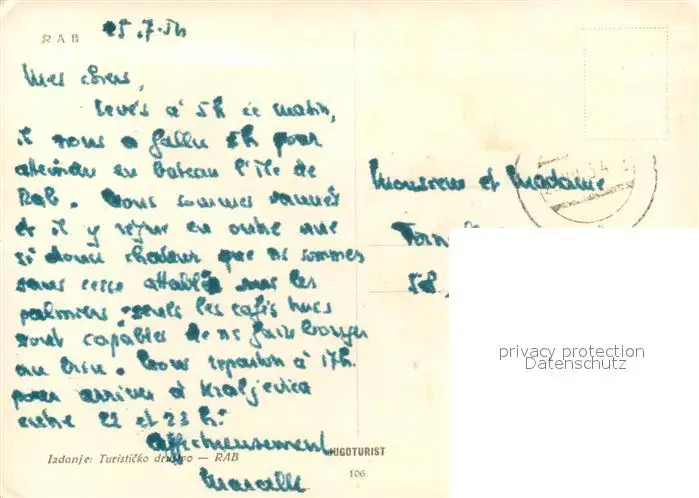 RAB
25.7.54
Mes chers,
Levés à 5h ce matin,
il nous a fallu 5h pour
atteindre en bateau l'île de
Rab. Nous sommes vannés
et il y règne en outre une
si douce chaleur que ns sommes
sans cesse attablés sous les
palmiers; seuls les cafés turcs
sont capables de ns faire bouger
un brin. Nous repartons à 17h.
pour arriver à Kraljevica
entre 22 et 23 h.
Affectueusement
Marcelle
Izdanje: Turističko društvo — RAB
JUGOTURIST
106
Monsieur et Madame
58,
privacy protection
Datenschutz